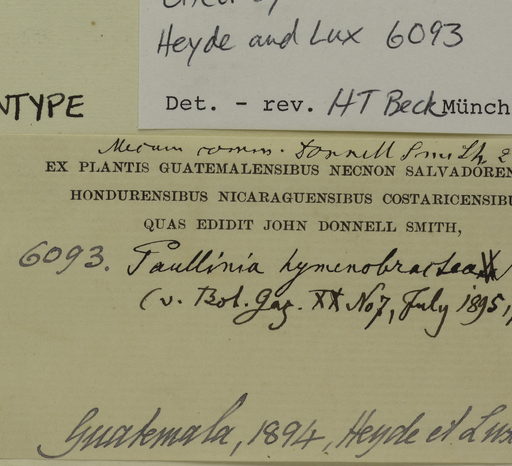 Heyde and Lux 6093
Det. - rev. HT Beck Münch
NTYPE
Mecum comm. Donnell Smith 2
EX PLANTIS GUATEMALENSIBUS NECNON SALVADOREN
HONDURENSIBUS NICARAGUENSIBUS COSTARICENSIBU
QUAS EDIDIT JOHN DONNELL SMITH,
6093. Paullinia hymenobractea
(v. Bot. Gaz. XX No 7, July 1895,
Guatemala, 1894, Heyde et Lux